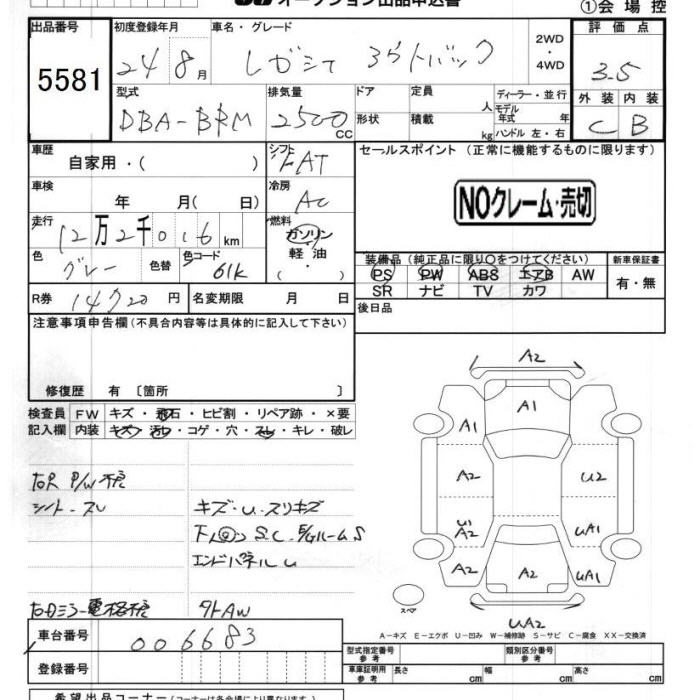 オークション出品申込書
①会場控
出品番号 初度登録年月 車名・グレード 評価点
5581 24 8月 レガシイ アウトバック 2WD・4WD 3.5
外装 内装
C B
型式 排気量 ドア 定員 ディーラー・並行
DBA-BRM 2500cc 形状 積載 人 kg モデル年式 年 ハンドル 左・右
車歴 シフト セールスポイント (正常に機能するものに限ります)
自家用・( ) FAT
車検 冷房
年 月( 日) AC
NOクレーム・売切
走行 燃料
12万2千016km ガソリン
軽油
・( )
色 色替 色コード
グレー 61K
装備品(純正品に限り○をつけてください) 新車保証書
PS PW ABS エアB AW 有・無
SR ナビ TV カワ
R券 14720円 名変期限 月 日
後日品
注意事項申告欄(不具合内容等は具体的に記入して下さい)
修復歴 有 〔箇所 〕
検査員 FW キズ・飛石・ヒビ割・リペア跡・×要
記入欄 内装 キズ・汚レ・コゲ・穴・スレ・キレ・破レ
シート・スレ
キズ・U・スリキズ
エンドパネルU
外AW
A2
A1
A1
A2 U2
U1
A2 UA1
A2 A2 UA1
スペア
UA2
A-キズ E-エクボ U-凹み W-補修跡 S-サビ C-腐食 XX-交換済
車台番号 006683
登録番号
型式指定番号 参考 類別区分番号 参考
車庫証明用 参考 長さ cm 幅 cm 高さ cm
希望出品コーナー(コーナーは各会場により異なります)